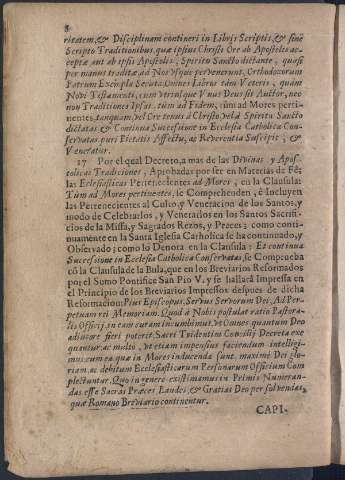 8
ritatem, & Disciplinam contineri in Libris Scriptis, & sinè
Scripto Traditionibus, quæ ipsius Christi Ore ab Apostolis ac-
ceptæ aut ab ipsis Apostolis, Spirito Sancto dictante, quasi
per manus traditæ ad Nos vsque pervenerunt, Orthodoxorum
Patrum Exempla Secuta: Omnes Libros tàm Veteris, quàm
Novi Testamenti, cum vtriusque Vnus Deus sit Author, nec
non Traditiones Ipsas, tùm ad Fidem, tùm ad Mores perti-
nentes, tanquam, vel Ore tenus à Christo, vel à Spirito Sancto
dictatas & Continua Successione in Ecclesia Catholica Con-
servatas, pari Pietatis Affectu, ac Reverentia Suscipit, &
Veneratur.
17 Por el qual Decreto, a mas de las Divinas y Apos-
tolicas Tradiciones, Aprobadas por ser en Materias de Fè;
las Eclesiasticas Pertenecientes ad Mores, en la Clausula:
Tùm ad Mores pertinentes, se Comprehenden, è Incluyen
las Pertenecientes al Culto, y Veneracion de los Santos, y
modo de Celebrarlos, y Venerarlos en los Santos Sacrifi-
cios de la Missa, y Sagrados Rezos, y Preces; como conti-
nuamente en la Santa Iglesia Catholica se ha continuado, y
Observado; como lo Denota en la Clausula: Et continua
Successione in Ecclesia Catholica Conservatas, se Comprueba
cõ la Clausula de la Bula, que en los Breviarios Reformados
por el Sumo Pontifice San Pio V. y se hallarà Impressa en
el Principio de los Breviarios Impressos despues de dicha
Reformacion: Pius Episcopus, Servus Servorum Dei, Ad Per-
petuam rei Memoriam. Quod à Nobis postulat ratio Pastora-
lis Officij, in eam curam incumbimus, vt Omnes quantum Deo
adiuvare fieri poterit Sacri Tridentini Consilij Decreta exe
quantur, ac multo, vt etiam impensius faciendum intelligi-
mus, cum ea quæ in Mores inducenda sunt maximè Dei glo-
riam, ac debitum Ecclesiasticarum Personarum Officium Com
plectuntur. Quo in genere existimamus in Primis Numeran-
das esse Sacras Præces Laudes, & Gratias Deo persolvendas,
quæ Romano Breviario continentur.
CAPI-